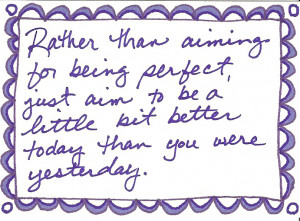 Rather than aiming
for being perfect,
just aim to be a
little bit better
today than you were
yesterday.